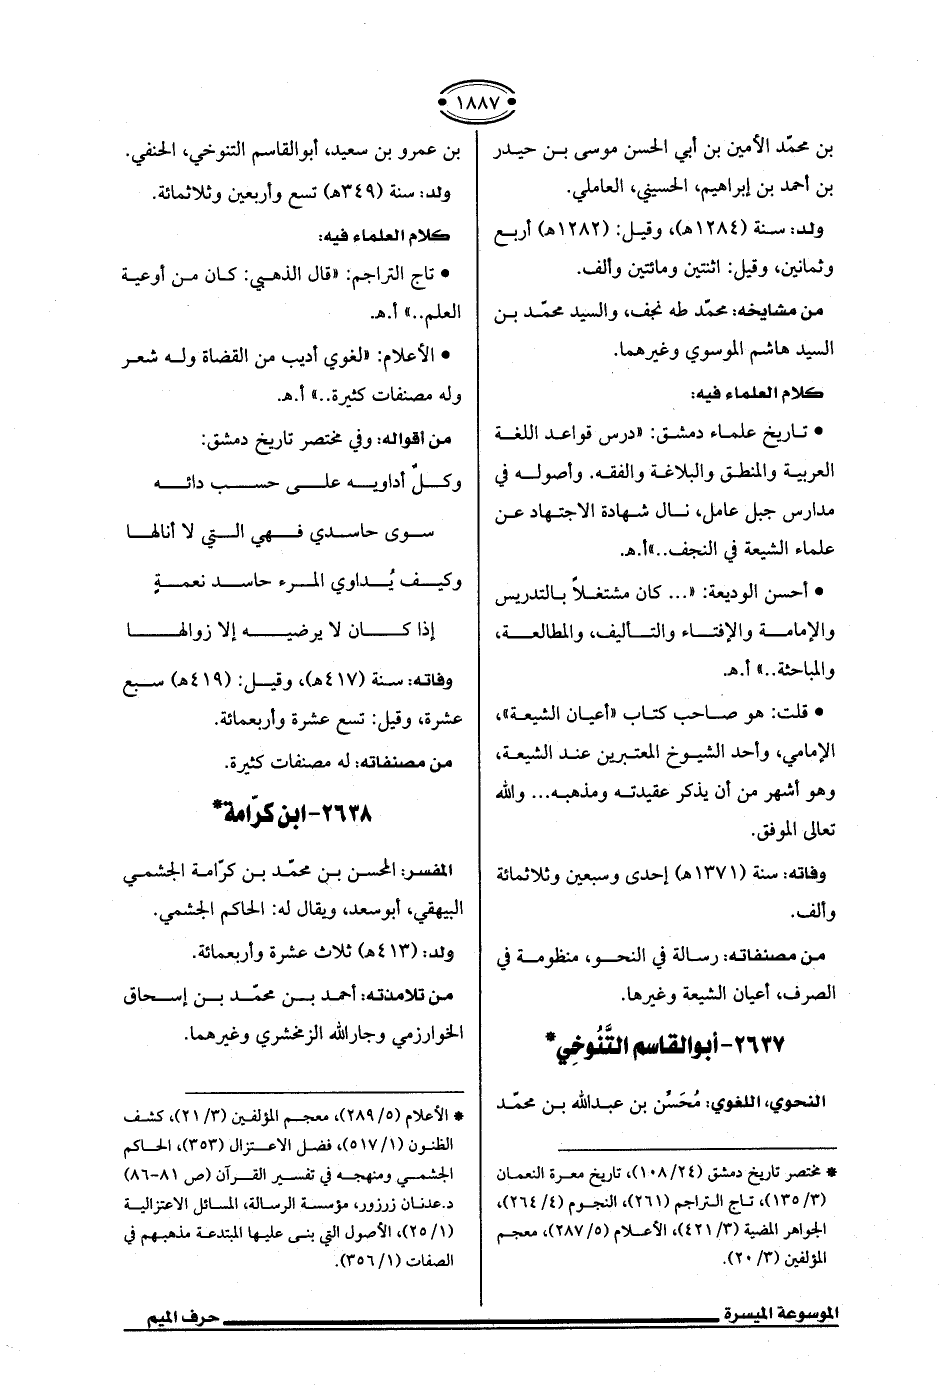 ١٨٨٧
بن محمّد الأمين بن أبي الحسن موسى بن حيدر
بن أحمد بن إبراهيم، الحسيني، العاملي.
ولد: سنة (١٢٨٤هـ)، وقيل: (١٢٨٢هـ) أربع
وثمانين، وقيل: اثنتين ومائتين وألف.
من مشايخه: محمّد طه نجف، والسيد محمّد بن
السيد هاشم الموسوي وغيرهما.
كلام العلماء فيه:
• تاريخ علماء دمشق: «درس قواعد اللغة
العربية والمنطق والبلاغة والفقه. وأصوله في
مدارس جبل عامل، نال شهادة الاجتهاد عن
علماء الشيعة في النجف..»أ.هـ.
• أحسن الوديعة: «... كان مشتغلاً بالتدريس
والإمامة والإفتاء والتأليف، والمطالعة،
والمباحثة..» أ.هـ.
• قلت: هو صاحب كتاب «أعيان الشيعة»،
الإمامي، وأحد الشيوخ المعتبرين عند الشيعة،
وهو أشهر من أن يذكر عقيدته ومذهبه... والله
تعالى الموفق.
وفاته: سنة (١٣٧١هـ) إحدى وسبعين وثلاثمائة
وألف.
من مصنفاته: رسالة في النحو، منظومة في
الصرف، أعيان الشيعة وغيرها.
٢٦٣٧- أبو القاسم التَّنُوخِي*
النحوي، اللغوي: مُحَسِّن بن عبدالله بن محمد
* مختصر تاريخ دمشق (١٠٨/٢٤)، تاريخ معرة النعمان
(١٣٥/٣)، تاج التراجم (٢٦١)، النجوم (٢٦٤/٤)،
الجواهر المضية (٤٢١/٣)، الأعلام (٢٨٧/٥)، معجم
المؤلفين (٢٠/٣).
بن عمرو بن سعيد، أبوالقاسم التنوخي، الحنفي.
ولد: سنة (٣٤٩هـ) تسع وأربعين وثلاثمائة.
كلام العلماء فيه:
• تاج التراجم: «قال الذهبي: كان من أوعية
العلم..» أ.هـ.
• الأعلام: «لغوي أديب من القضاة وله شعر
وله مصنفات كثيرة..» أ.هـ.
من أقواله: وفي مختصر تاريخ دمشق:
وكلٌ أداويه على حسب دائه
سوى حاسدي فهي التي لا أنالها
وكيف يُداوي المرء حاسد نعمةٍ
إذا كان لا يرضيه إلا زوالها
وفاته: سنة (٤١٧هـ)، وقيل: (٤١٩هـ) سبع
عشرة، وقيل: تسع عشرة وأربعمائة.
من مصنفاته: له مصنفات كثيرة.
٢٦٣٨- ابن كرّامة*
المفسر: المحسن بن محمّد بن كرّامة الجشمي
البيهقي، أبوسعد، ويقال له: الحاكم الجشمي.
ولد: (٤١٣هـ) ثلاث عشرة وأربعمائة.
من تلامذته: أحمد بن محمّد بن إسحاق
الخوارزمي وجارالله الزمخشري وغيرهما.
* الأعلام (٢٨٩/٥)، معجم المؤلفين (٢١/٣)، كشف
الظنون (٥١٧/١)، فضل الاعتزال (٣٥٣)، الحاكم
الجشمي ومنهجه في تفسير القرآن (ص ٨١-٨٦)
د.عدنان زرزور، مؤسسة الرسالة، المسائل الاعتزالية
(٢٥/١)، الأصول التي بنى عليها المبتدعة مذهبهم في
الصفات (٣٥٦/١).
الموسوعة الميسرة حرف الميم